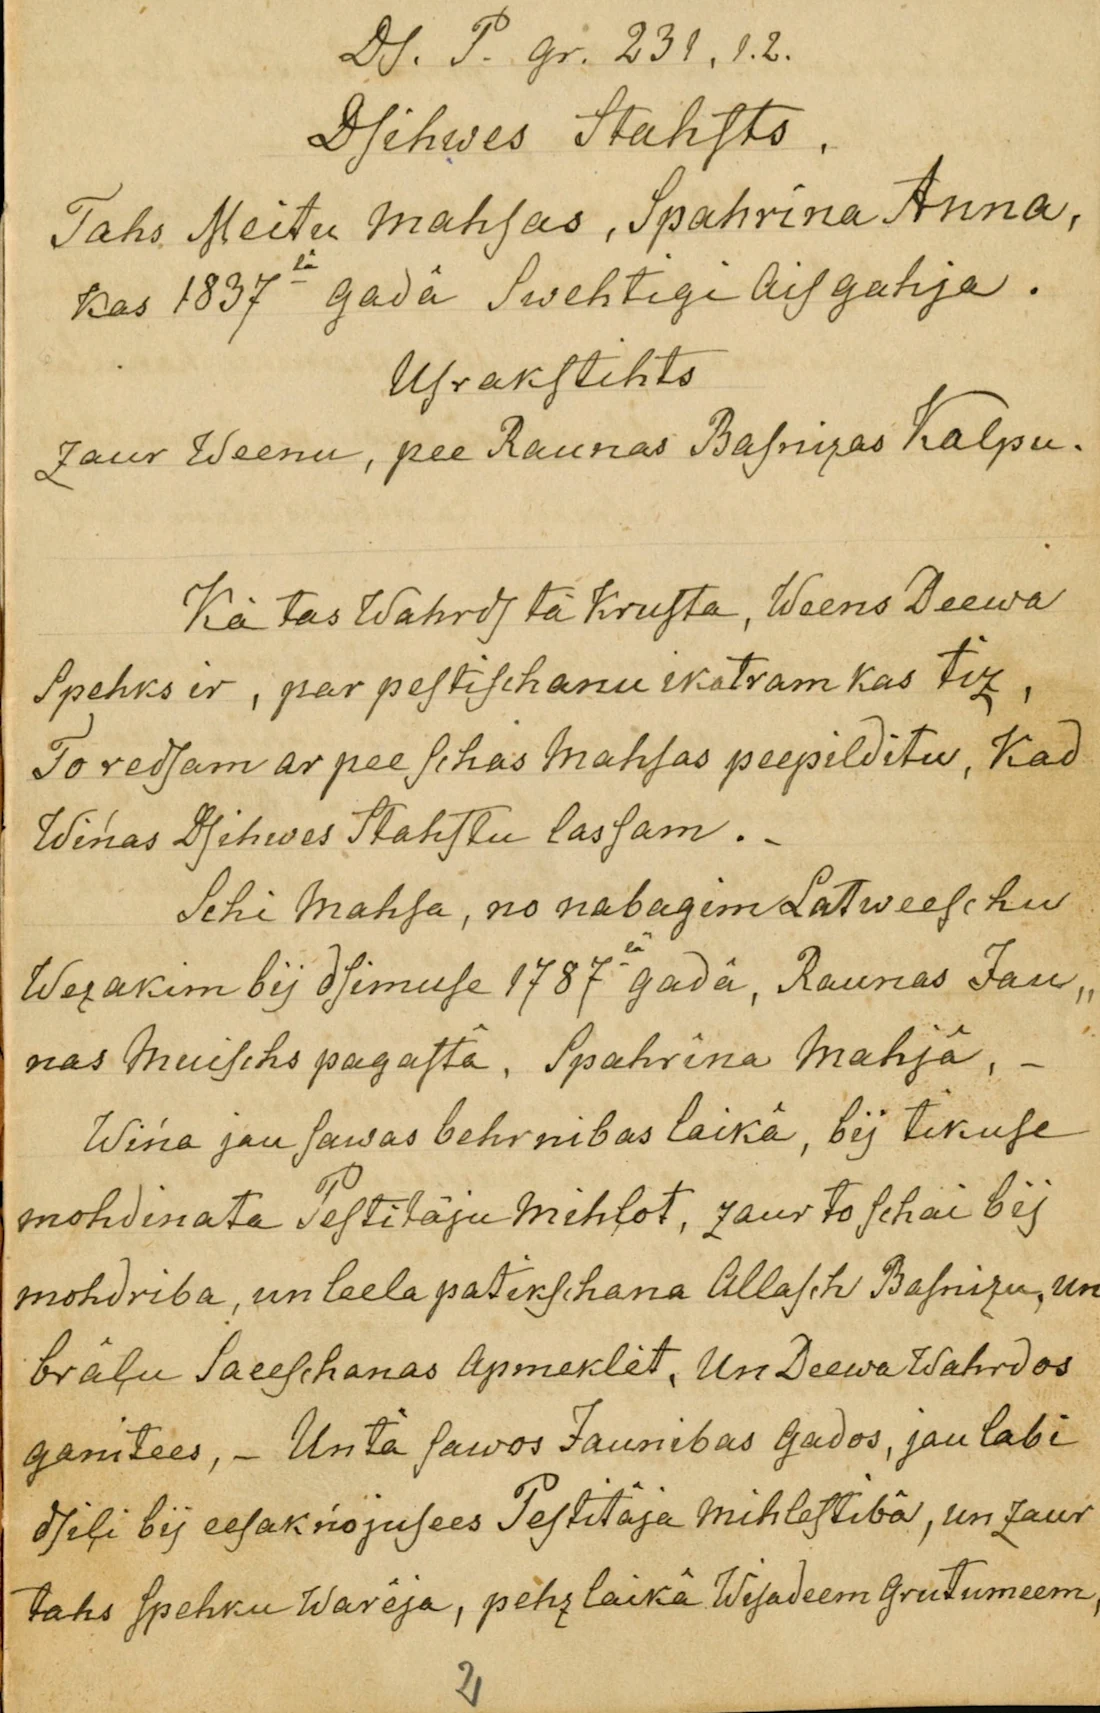 Dſ. P. gr. 231, 1.2.
Dſihwes Stahſts.
Tahs Meitu Mahſas, Spahrina Anna,
Kas 1837tâ gadâ Swehtigi Aiſgahja.
Uſrakſtihts
zaur Weenu, pee Raunas Baſnizas Kalpu.
Kâ tas Wahrdſ tâ Kruſta, Weens Deewa
Spehks ir, par peſtiſchanu ikatram kas tiz,
To redſam ar pee ſchas Mahſas peepilditu, Kad
Wińas Dſihwes Stahſtu laſſam. -
Schi Mahſa, no nabagim Latweeſchu
Wezakim bij dſimuſe 1787tâ gadâ, Raunas Jau„
nas Muiſchs pagaſtâ, Spahrina Mahjâ, -
Wińa jau ſawas behrnibas laikâ, bij tikuſe
mohdinata Peſtitâju Mihļot, zaur to ſchai bij
mohdriba, un leela patikſchana Allaſch Baſnizu, un
brâļu Saeeſchanas Apmeklêt, Un Deewa Wahrdos
ganitees, - Un tâ ſawos Jaunibas Gados, jau labi
dſiļi bij eeſakńojuſees Peſtitâja Mihleſtibâ, un zaur
tahs ſpehku Warêja, pehz laikâ Wiſadeem Grutumeem,
2